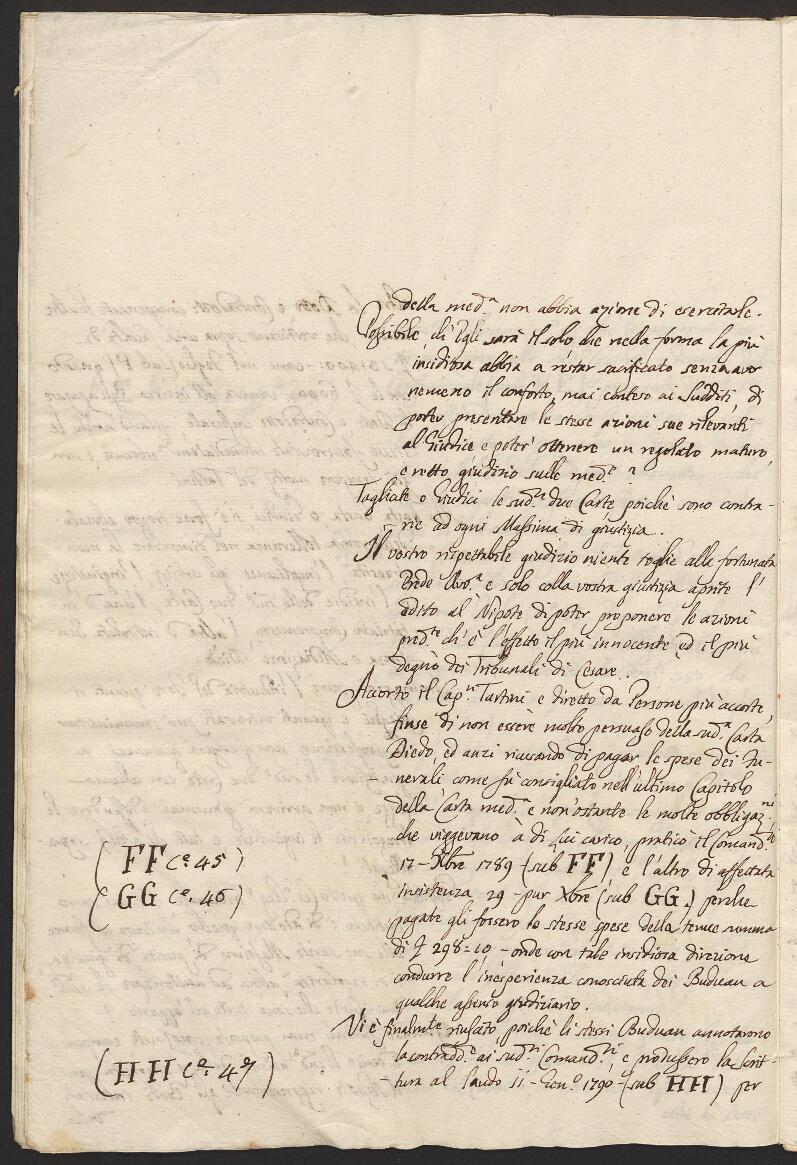 della med.ª non abbia azione di esercitarle.
Possibile, ch'Egli sarà il solo che nella forma la più
insidiosa abbia a restar sacrificato senza aver
nemeno il conforto, mai conteso ai Sudditi, di
poter presentare le stesse azioni sue rilevanti
al Giudice e poter' ottenere un regolato maturo,
e retto giudizio sulle med.e ?
Tagliate o Giudici le sud.e due Carte poichè sono contra-
rie ad ogni Massima di giustizia.
Il vostro rispettabile giudizio niente toglie alla fortunata
Erede Avv.ª e solo colla vostra giustizia aprite l'
adito al Nipote di poter proporre le azioni
pred.te ch'è l'effetto il più innocente ed il più
degno dei Tribunali di Cesare.
Accorto il Cap.n Tartini e diretto da Persone più accorte,
finse di non essere molto persuaso della sud.ª Carta
Diedo, ed anzi ricusando di pagar le spese dei Fu-
nerali come fù consigliato nell'ultimo Capitolo
della Carta med.ª e non'ostante le molte obbligaz.ni
che viggevano à di Lui carico, praticò il Comand.to
17 - Xbre 1789 (sub FF) e l'altro di affettata
insistenza 29 - pur Xbre (sub GG.) perche
pagate gli fossero le stesse spese della tenue summa
di 298=10 - onde con tale insidiosa direzione
condurre l'inesperienza conosciuta dei Buduan a
qualche assenso giudiziario.
Vi è finalmte riusato, poichè li stessi Buduan annotarono
la contradd.e ai sud.ti Comand.ti, e produssero la Scrit-
tura al laudo 11 - Gen.o 1790 - (sub HH) per
(FF C.e 45)
(GG C.e 46)
(HH C.e 47)